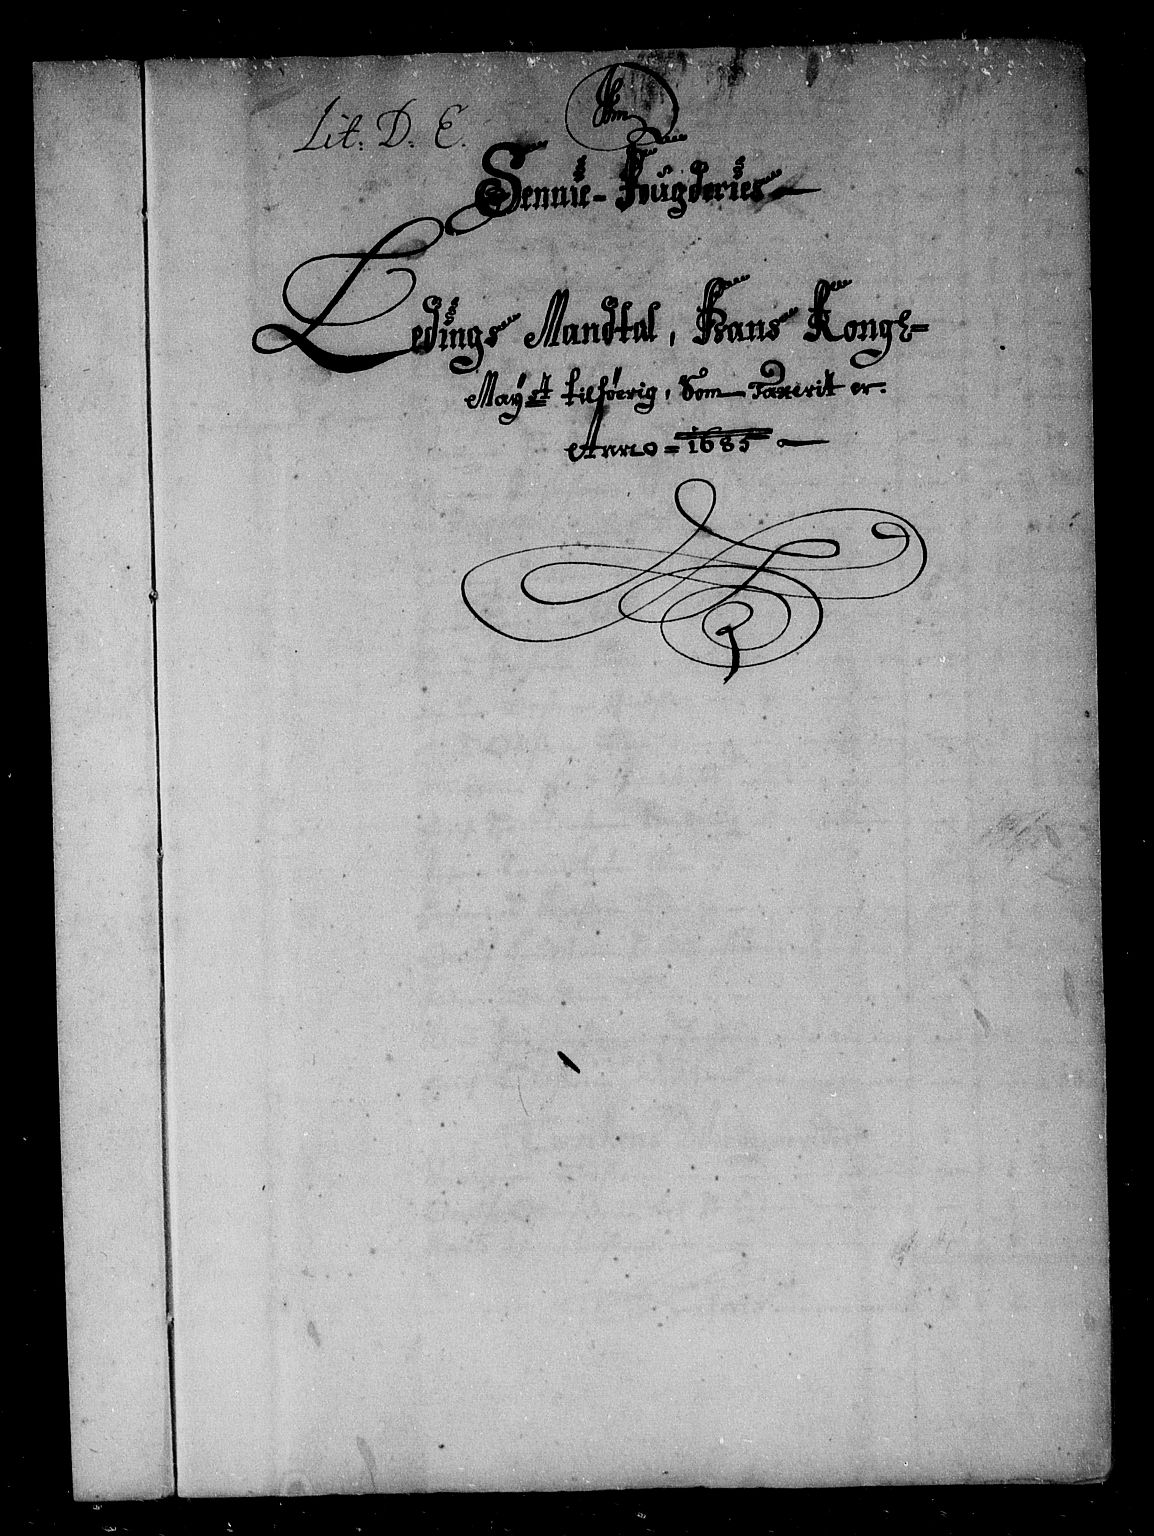 Lit. D. E.
Sennie-Fougderies
Ledings Mandtal, Hans Kongl-
May.st tilhøerig, Som Taxerit er.
Anno = 1685